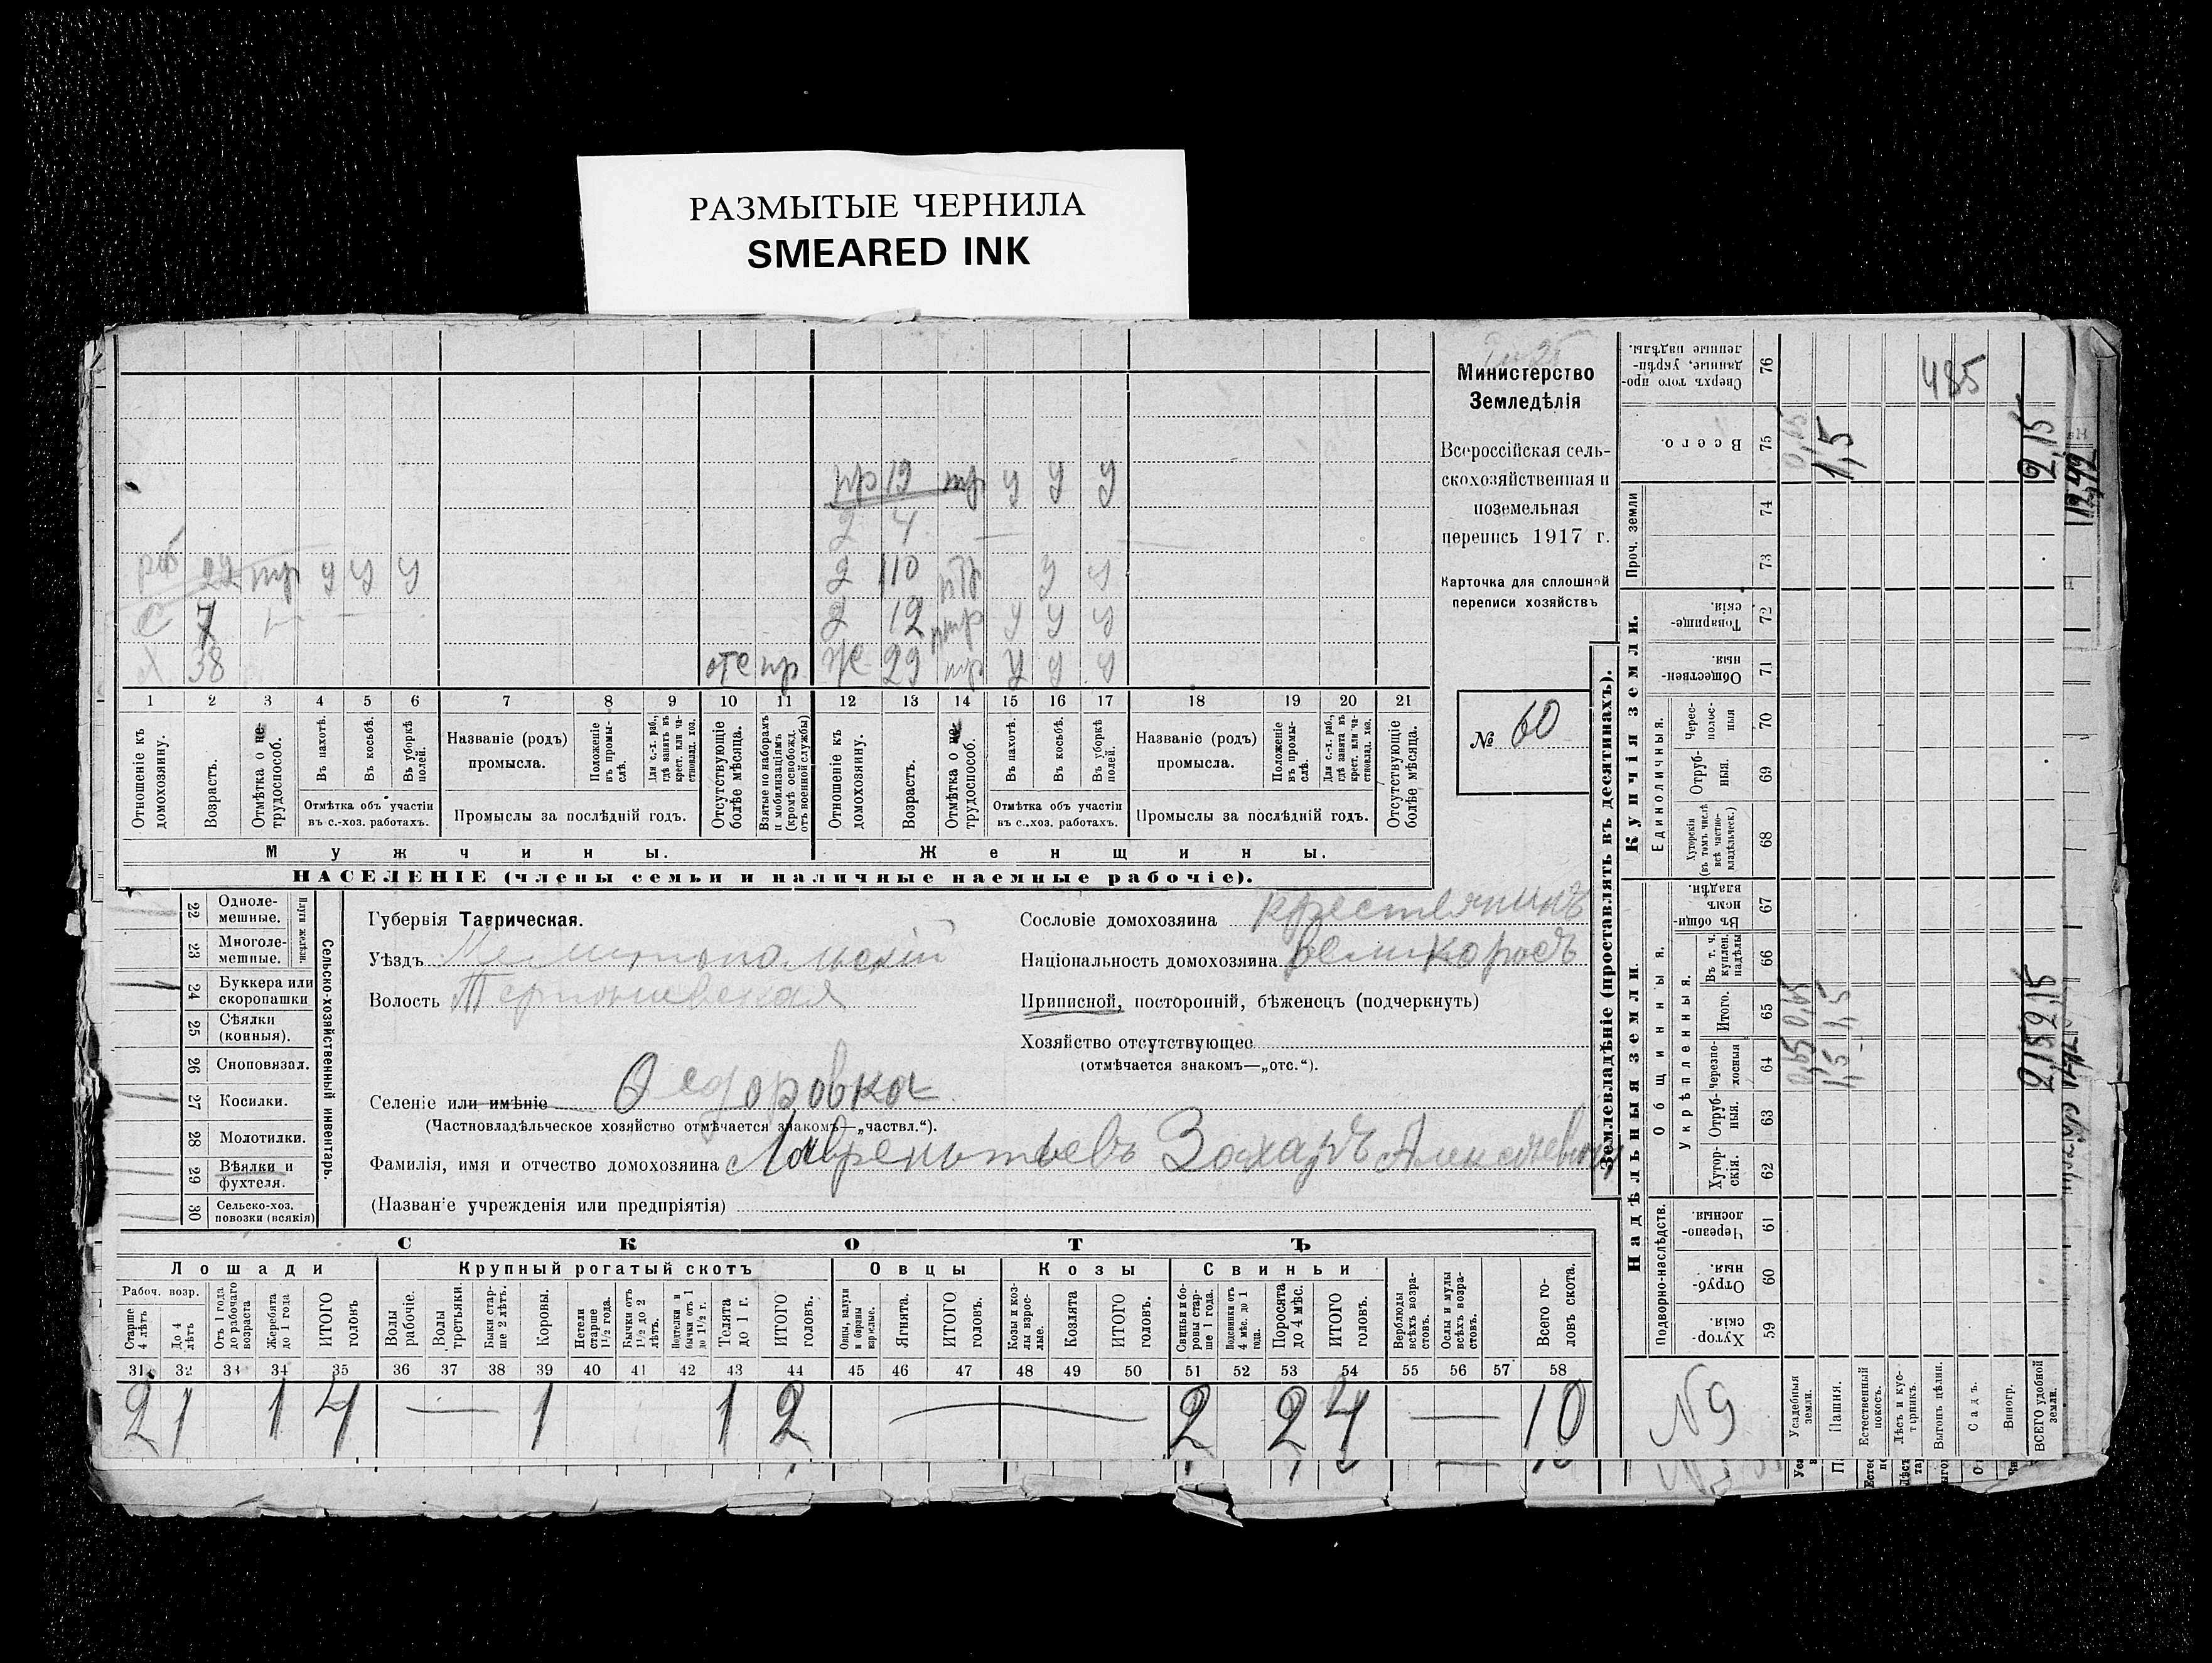 РАЗМЫТЫЕ ЧЕРНИЛА
SMEARED INK
Министерство
Земледѣлія
Всероссійская сель-
скохозяйственная и
поземельная
перепись 1917 г.
Карточка для сплошной
переписи хозяйствъ
№ 60
пр 19 тр у у у
2 4 —
раб 22 тр у у у
2 10 у у
с 7
2 12 у у у
х 38 отс пр
ж 29 тр у у у
1 2 3 4 5 6 7 8 9 10 11 12 13 14 15 16 17 18 19 20 21
Отношеніе къ домохозяину.
Возрастъ.
Отмѣтка о не трудоспособ.
Въ пахотѣ.
Въ косьбѣ.
Въ уборкѣ полей.
Отмѣтка объ участіи въ с.-хоз. работахъ.
Названіе (родъ) промысла.
Положеніе въ промыслѣ.
Для с.-х. раб., гдѣ занятъ въ крест. или частновлад. хоз.
Промыслы за послѣдній годъ.
Отсутствующіе болѣе мѣсяца.
Взятые по наборамъ и мобилизаціямъ (кромѣ освобожд. отъ военной службы)
Отношеніе къ домохозяину.
Возрастъ.
Отмѣтка о не трудоспособ.
Въ пахотѣ.
Въ косьбѣ.
Въ уборкѣ полей.
Отмѣтка объ участіи въ с.-хоз. работахъ.
Названіе (родъ) промысла.
Положеніе въ промыслѣ.
Для с.-х. раб., гдѣ занята въ крест. или частновлад. хоз.
Промыслы за послѣдній годъ.
Отсутствующіе болѣе мѣсяца.
Мужчины.
Женщины.
НАСЕЛЕНІЕ (члены семьи и наличные наемные рабочіе).
Сельско-хозяйственный инвентарь.
Плуги желѣзн.
22 Однолемешные.
23 Многолемешные.
24 Буккера или скоропашки
25 Сѣялки (конныя).
26 Сноповязал.
27 Косилки.
28 Молотилки.
29 Вѣялки и фухтеля.
30 Сельско-хоз. повозки (всякія)
Губернія Таврическая.
Уѣздъ Мелитопольскій
Волость
Селеніе или имѣніе Федоровка
(Частновладѣльческое хозяйство отмѣчается знакомъ—„частвл.“).
Фамилія, имя и отчество домохозяина Лаврентьевъ Захаръ Алексѣевичъ
(Названіе учрежденія или предпріятія)
Сословіе домохозяина крестьянинъ
Національность домохозяина великоросъ
Приписной, посторонній, бѣженецъ (подчеркнуть)
Хозяйство отсутствующее
(отмѣчается знакомъ—„отс.“).
СКОТЪ
Лошади
Крупный рогатый скотъ
Овцы
Козы
Свиньи
Рабоч. возр.
Старше 4 лѣтъ
До 4 лѣтъ
Отъ 1 года до рабочаго возраста
Жеребята до 1 года
ИТОГО головъ
Волы рабочіе.
Волы третьяки.
Быки старше 2 лѣтъ.
Коровы.
Нетели старше 1½ года.
Бычки отъ 1½ до 2 лѣтъ.
Подтелки и бычки отъ 1 до 1½ г.
Телята до 1 г.
ИТОГО головъ.
Овцы, валухи и бараны взрослые.
Ягнята.
ИТОГО головъ.
Козы и козлы взрослые.
Козлята
ИТОГО головъ.
Свиньи и боровы старше 1 года.
Подсвинки отъ 4 мѣс. до 1 года.
Поросята до 4 мѣс.
ИТОГО головъ.
Верблюды всѣхъ возрастовъ.
Ослы и мулы всѣхъ возрастовъ.
Всего головъ скота.
31 32 33 34 35 36 37 38 39 40 41 42 43 44 45 46 47 48 49 50 51 52 53 54 55 56 57 58
2 1 1 4 — 1 1 2 — 2 2 4 — 10
Землевладѣніе (проставлять въ десятинахъ).
Надѣльныя земли.
Купчія земли.
Подворно-наслѣдств.
Общинныя.
Укрѣпленныя.
Единоличныя.
Проч. земли
Хуторскія. 59
Отрубныя. 60
Черезполосныя 61
Хуторскія. 62
Отрубныя. 63
Черезполосныя 64
Итого. 65
Въ т. ч. куплен. надѣлы 66
Въ общинномъ владѣн. 67
Хуторскія (въ томъ числѣ всѣ частновладѣльческ.) 68
Отрубныя. 69
Чересполосныя 70
Общественныя. 71
Товарищескія. 72
73
74
Всего. 75
Сверхъ того проданные, укрѣпленные надѣлы. 76
Усадебныя земли. 0,65 0,65 0,65
Пашня. 1,5 1,5 1,5
Естественный покосъ.
Лѣсъ и кустарникъ.
Выгонъ цѣлин.
Садъ.
Виногр.
ВСЕГО удобной земли. 2,15 2,15 2,15
485
12,42
№9